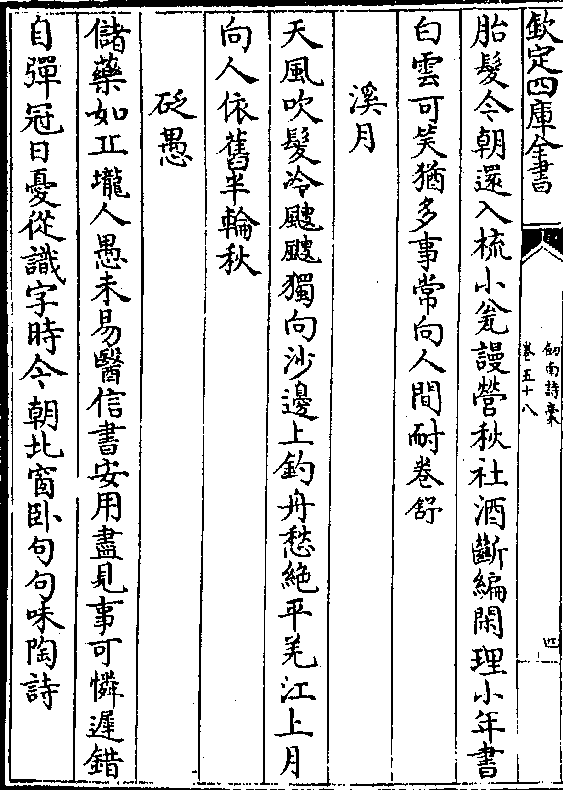 欽定四庫全書
劒南詩稾
卷五十八
四
胎髮今朝還入梳小瓮謾營秋社酒斷編閑理小年書
白雲可笑猶多事常向人間耐卷舒
溪月
天風吹髮冷颼颼獨向沙邊上釣舟愁絶平羌江上月
向人依舊半輪秋
砭愚
儲藥如丘壠人愚未易醫信書安用盡見事可憐遲錯
自彈冠日憂從識字時今朝北窗臥句句味陶詩